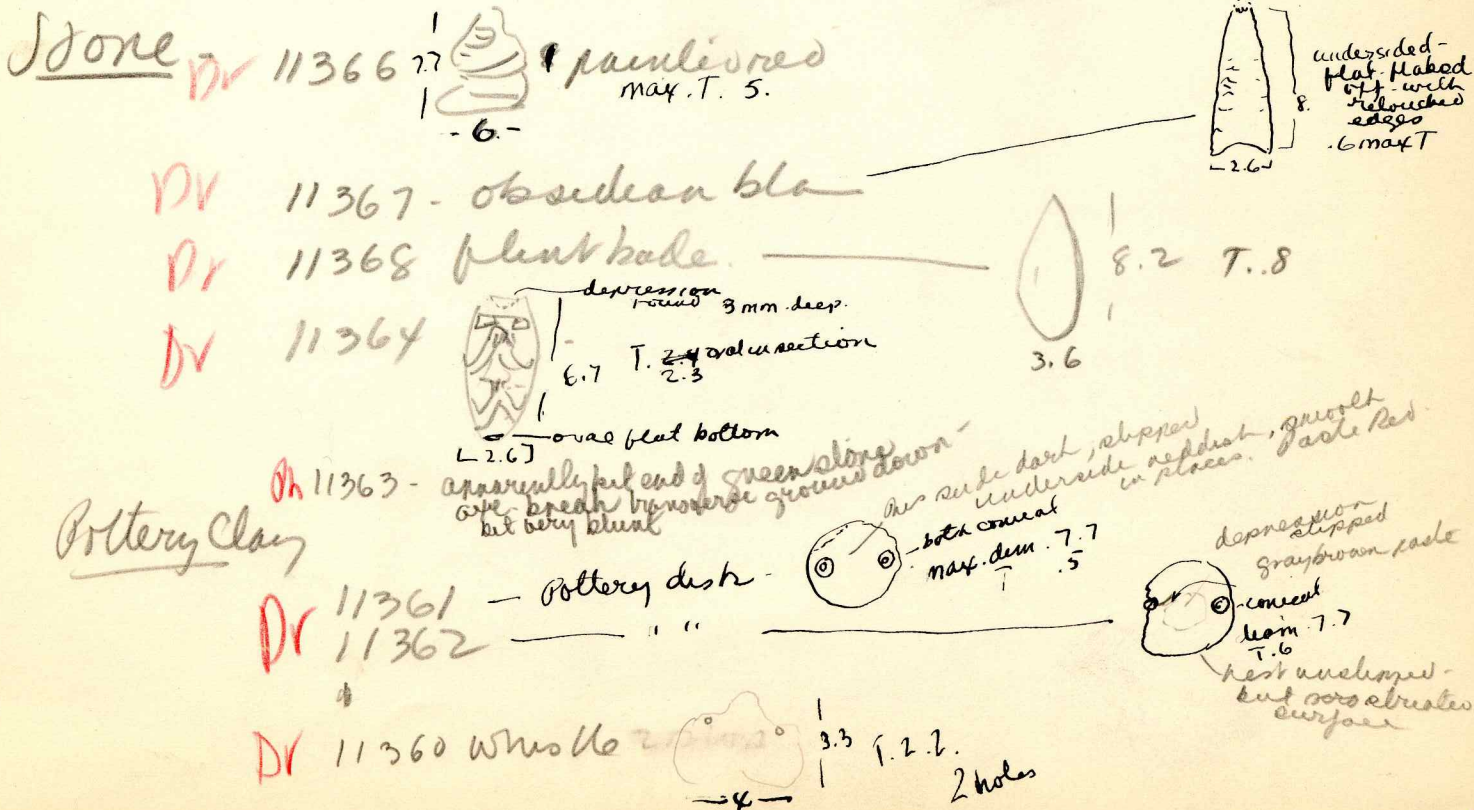 Stone -
Dr 11366 7.7 painted red
max. T. 5.
- 6. -
underside -
flat flaked
off - with
retouched
edges
.6 max T
8.
2.6
Dr 11367 - obsidian bla
Dr 11368 flint bade.
8.2 T. .8
3.6
Dr 11364
depression
round 3 mm. deep.
6.7 T. 2.4 oval in section
2.3
oval flat bottom
[2.6]
Ph 11363 - apparently bit end of green stone
axe - break transverse ground down -
bit very blunt
Pottery Clay
this side dark, slipped
underside reddish, smooth
in places. Paste Red.
Dr 11361 - Pottery disk -
both conical
max. dim. 7.7
T .5
11362 " "
depression
slipped
gray brown paste
conical
T. .6
rest unslipped -
but striated
surface
Dr 11360 whistle
3.3 T. 2.2.
2 holes
- 4 -